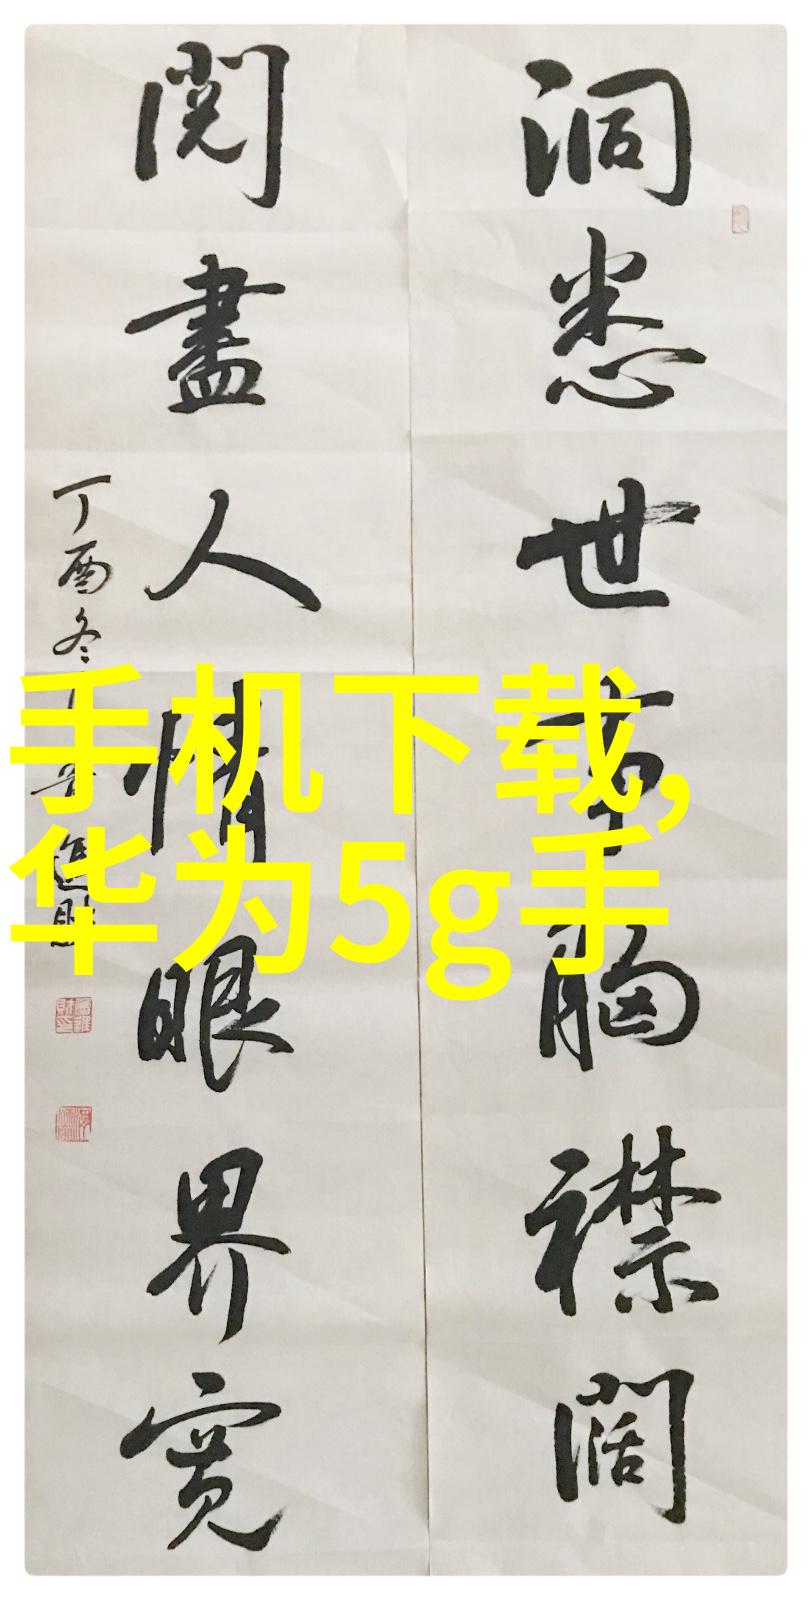 洞悉世事胸襟阔
阅尽人情眼界宽
丁酉冬
進財
手机下载,
华为5g手